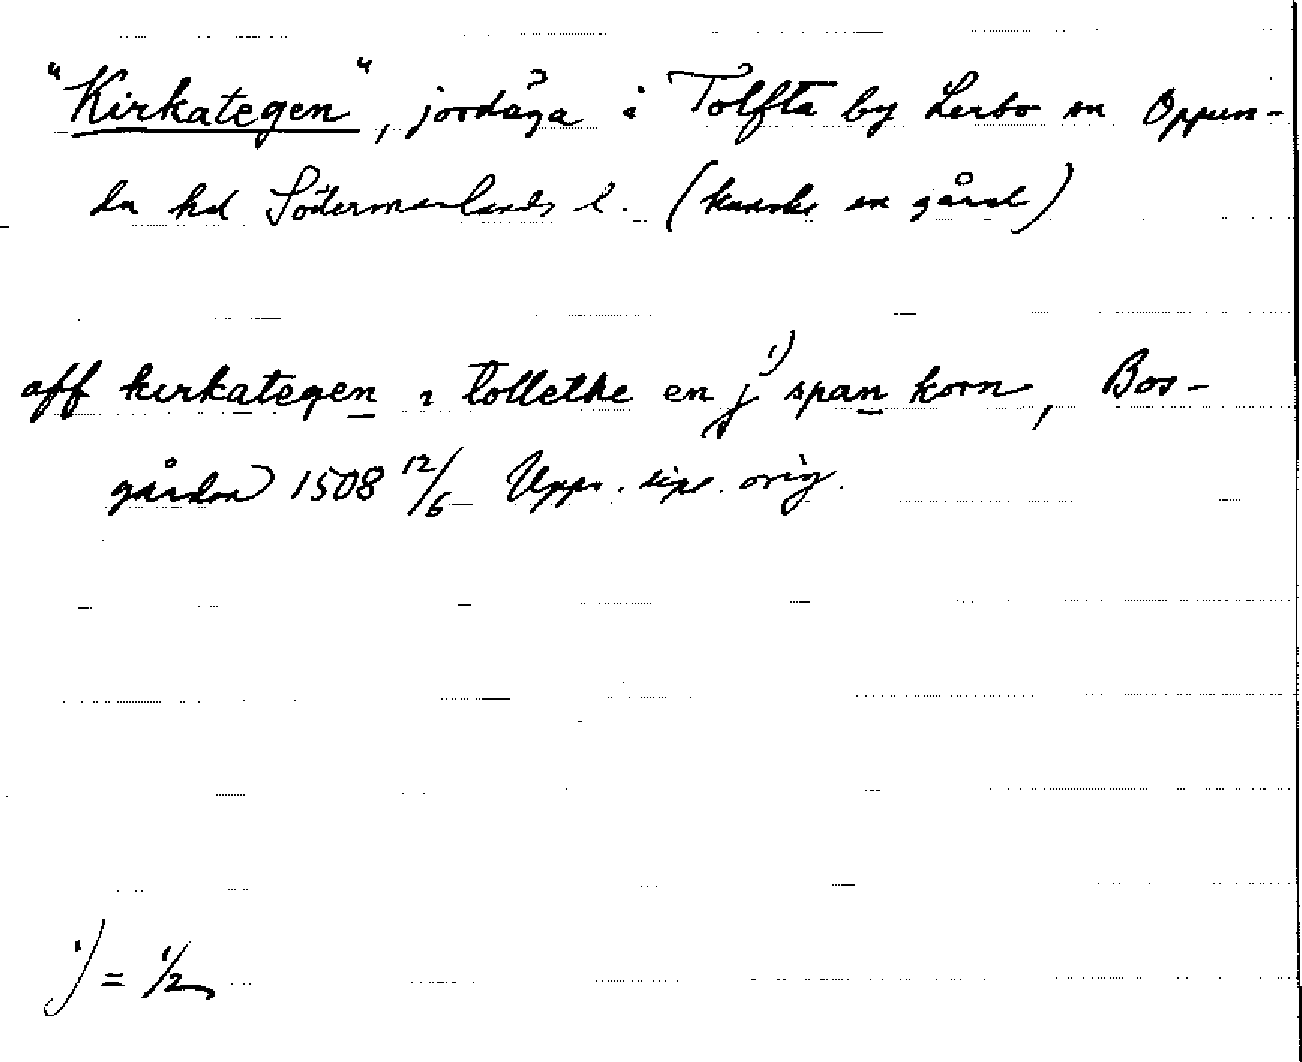 "Kirkategen", jordäga i Tolfta by Lerbo sn Oppun-
da hd Södermanlands l. (kanske en gård)
aff kirkategen i tollethe en j¹⁾ span korn, Bos-
gården 1508 12/6 Upps. dipl. orig.
1) = 1/2